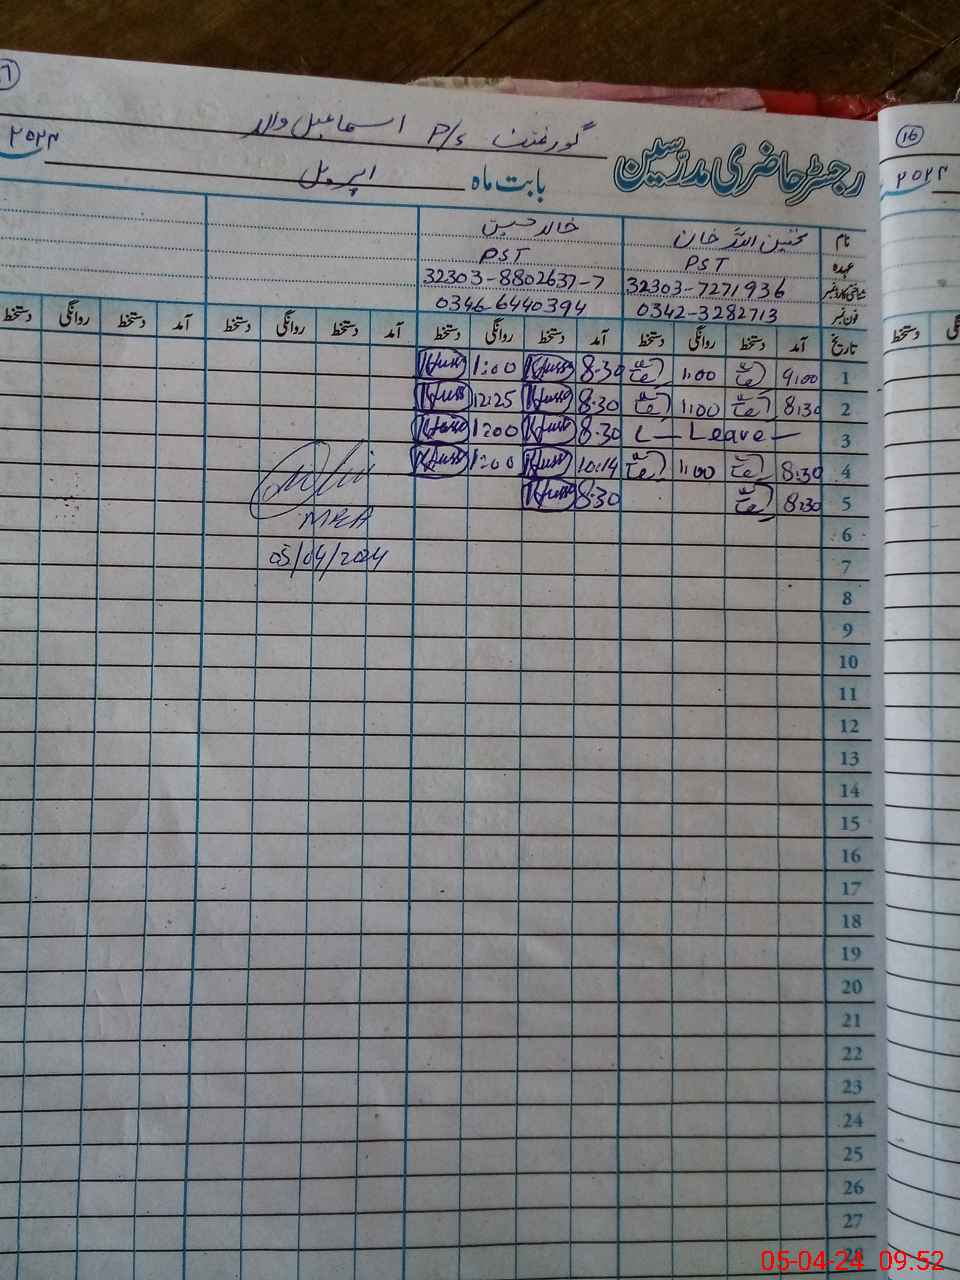 17
گورنمنٹ P/s اسماعیل والہ
رجسٹر حاضری مدرسین
بابت ماہ اپریل ۲۰۲۴
16
۲۰۲۴
نام خان خالد حسین
عہدہ PST PST
شناختی کارڈ نمبر 32303-7271936 32303-8802637-7
فون نمبر 0342-3282713 0346-6440394
تاریخ آمد دستخط روانگی دستخط آمد دستخط روانگی دستخط آمد دستخط روانگی دستخط آمد دستخط روانگی دستخط
دستخط
1 9:00 1:00 8.30 1:00
2 8:30 1:00 8.30 12:25
3 L - Leave - 8.30 1:00
4 8:30 1:00 10:14 1:00
5 8:30 8.30
MEA
05/04/2024
6
7
8
9
10
11
12
13
14
15
16
17
18
19
20
21
22
23
24
25
26
27
28
05-04-24 09.52